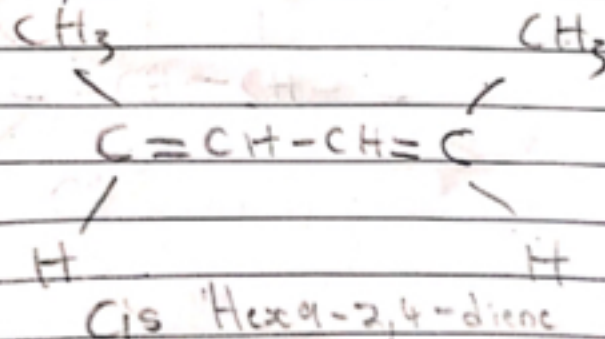 CH3 CH3
C=CH-CH=C
H H
Cis Hexa-2,4-diene